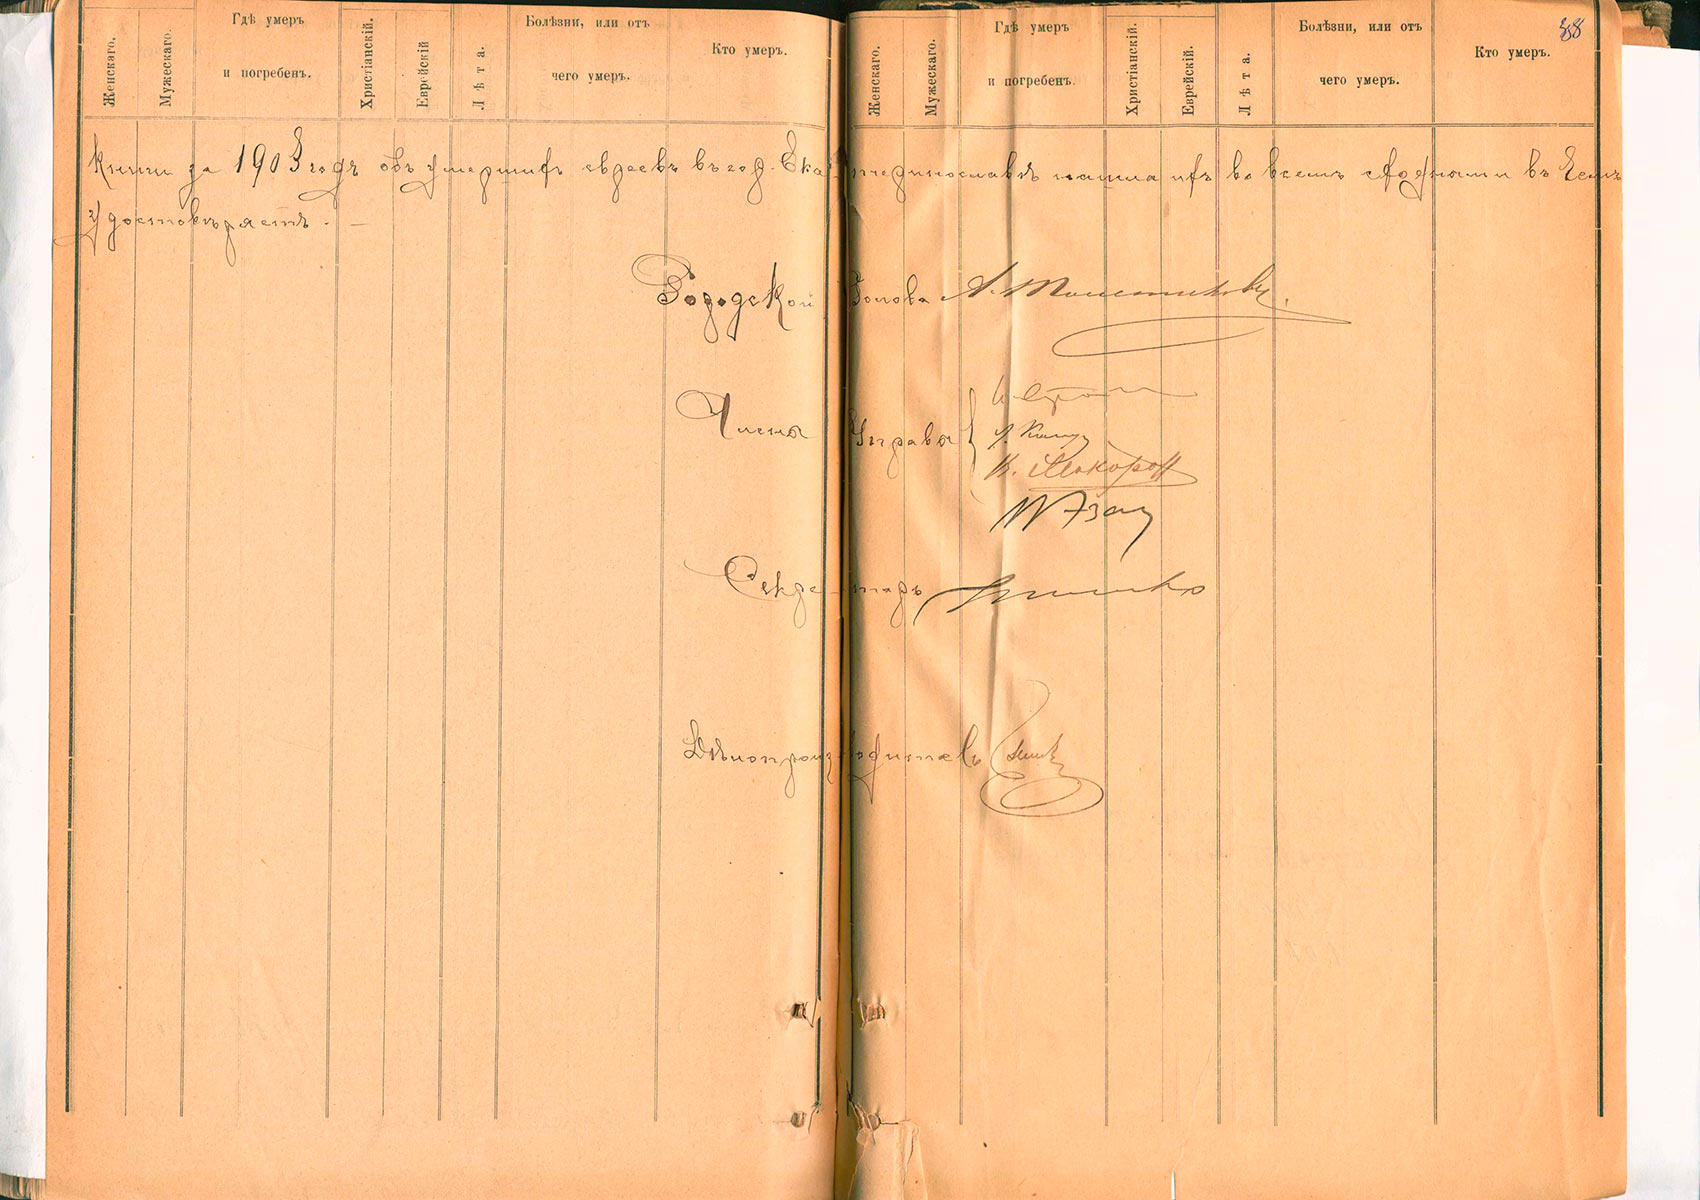 Женскаго.
Мужескаго.
Гдѣ умеръ
и погребенъ.
Христіанскій.
Еврейскій
Лѣта.
Болѣзни, или отъ
чего умеръ.
Кто умеръ.
Женскаго.
Мужескаго.
Гдѣ умеръ
и погребенъ.
Христіанскій.
Еврейскій.
Лѣта.
Болѣзни, или отъ
чего умеръ.
Кто умеръ.
книги за 1903 годъ объ умершихъ евреевъ въ гор. Екатеринославѣ нашла ихъ во всемъ сходными въ чемъ
удостовѣряетъ. —
Городской Голова А. Толстиковъ
Члены Управы
Секретарь
Дѣлопроизводитель